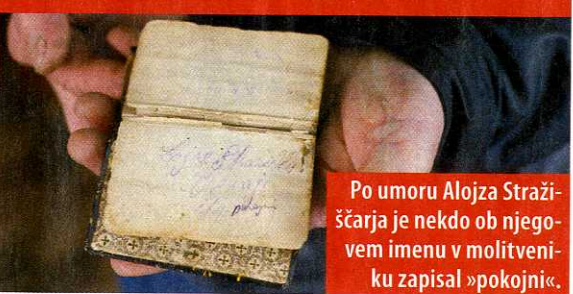 pokojni
Po umoru Alojza Straži-
ščarja je nekdo ob njego-
vem imenu v molitveni-
ku zapisal »pokojni«.